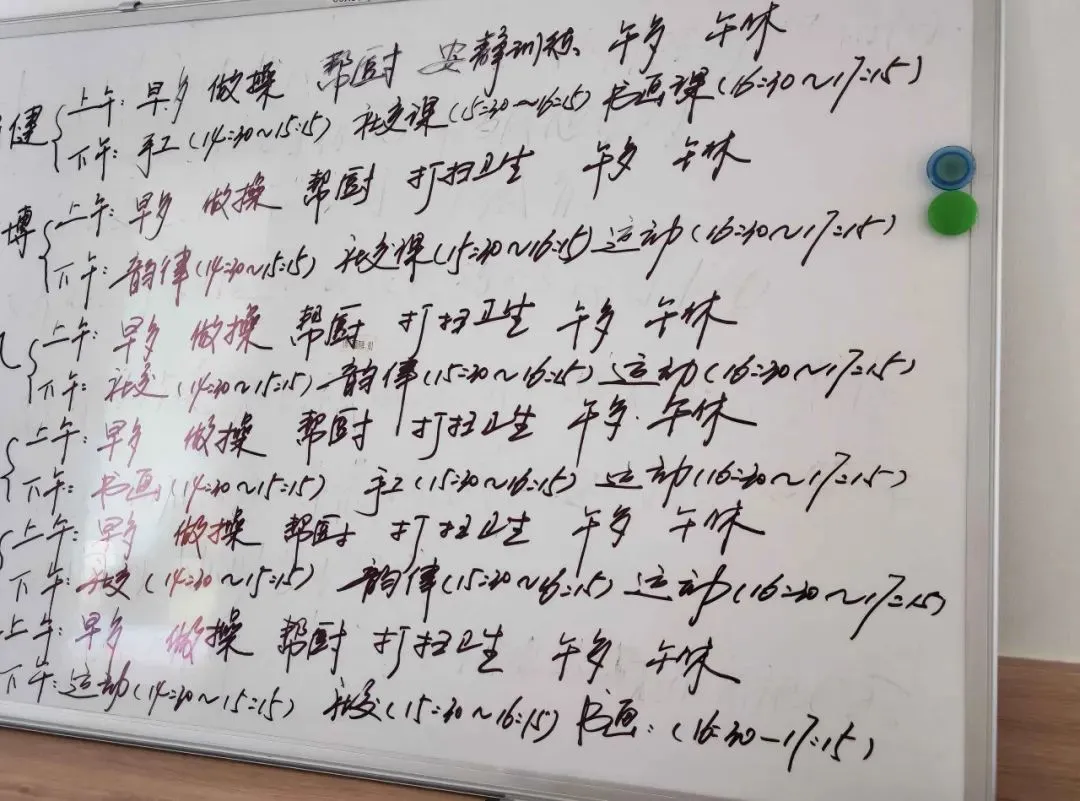 健 上午: 早多 做操 帮厨 安静训练 午多 午休
下午: 手工(14:30~15:15) 社交课(15:30~16:15) 书画课(16:30~17:15)
博 上午: 早多 做操 帮厨 打扫卫生 午多 午休
下午: 韵律(14:30~15:15) 社交课(15:30~16:15) 运动(16:30~17:15)
上午: 早多 做操 帮厨 打扫卫生 午多 午休
下午: 社交(14:30~15:15) 韵律(15:30~16:15) 运动(16:30~17:15)
上午: 早多 做操 帮厨 打扫卫生 午多 午休
下午: 书画(14:30~15:15) 手工(15:30~16:15) 运动(16:30~17:15)
上午: 早多 做操 帮厨 打扫卫生 午多 午休
下午: (14:30~15:15) 韵律(15:30~16:15) 运动(16:30~17:15)
上午: 早多 做操 帮厨 打扫卫生 午多 午休
下午: 运动(14:30~15:15) 社交(15:30~16:15) 书画: (16:30-17:15)